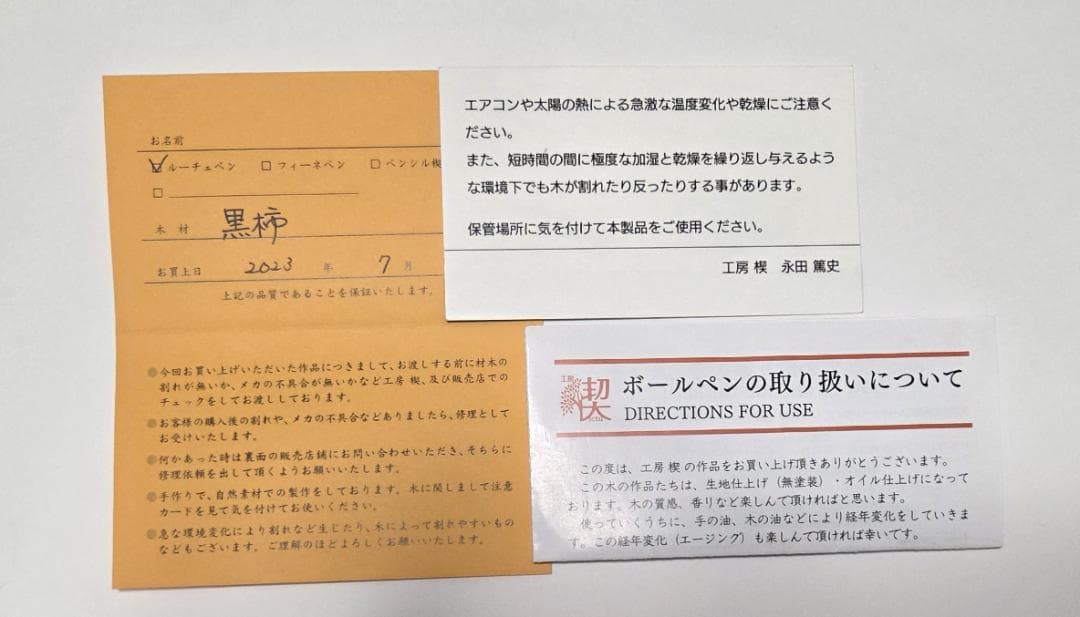 お名前
ルーチェペン □ フィーネペン □ ペンシル楔
□
木 材 黒柿
お買上日 2023 年 7 月
上記の品質であることを保証いたします。
●今回お買い上げいただいた作品につきまして、お渡しする前に材木の
割れが無いか、メカの不具合が無いかなど工房 楔、及び販売店での
チェックをしてお渡ししております。
●お客様の購入後の割れや、メカの不具合などありましたら、修理として
お受けいたします。
●何かあった時は裏面の販売店舗にお問い合わせいただき、そちらに
修理依頼を出して頂くようお願いいたします。
●手作りで、自然素材での製作をしております。木に関しまして注意
カードを見て気を付けてお使いください。
●急な環境変化により割れなど生じたり、木によって割れやすいもの
などもございます。ご理解のほどよろしくお願いいたします。
エアコンや太陽の熱による急激な温度変化や乾燥にご注意く
ださい。
また、短時間の間に極度な加湿と乾燥を繰り返し与えるよう
な環境下でも木が割れたり反ったりする事があります。
保管場所に気を付けて本製品をご使用ください。
工房 楔 永田 篤史
工房 楔
ボールペンの取り扱いについて
DIRECTIONS FOR USE
この度は、工房 楔 の作品をお買い上げ頂きありがとうございます。
この木の作品たちは、生地仕上げ（無塗装）・オイル仕上げになって
おります。木の質感、香りなど楽しんで頂ければと思います。
使っていくうちに、手の油、木の油などにより経年変化をしていきま
す。この経年変化（エージング）も楽しんで頂ければ幸いです。